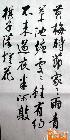 黄梅时节家家雨青
草池塘处处蛙有约
不来过夜半闲敲
棋子落灯花